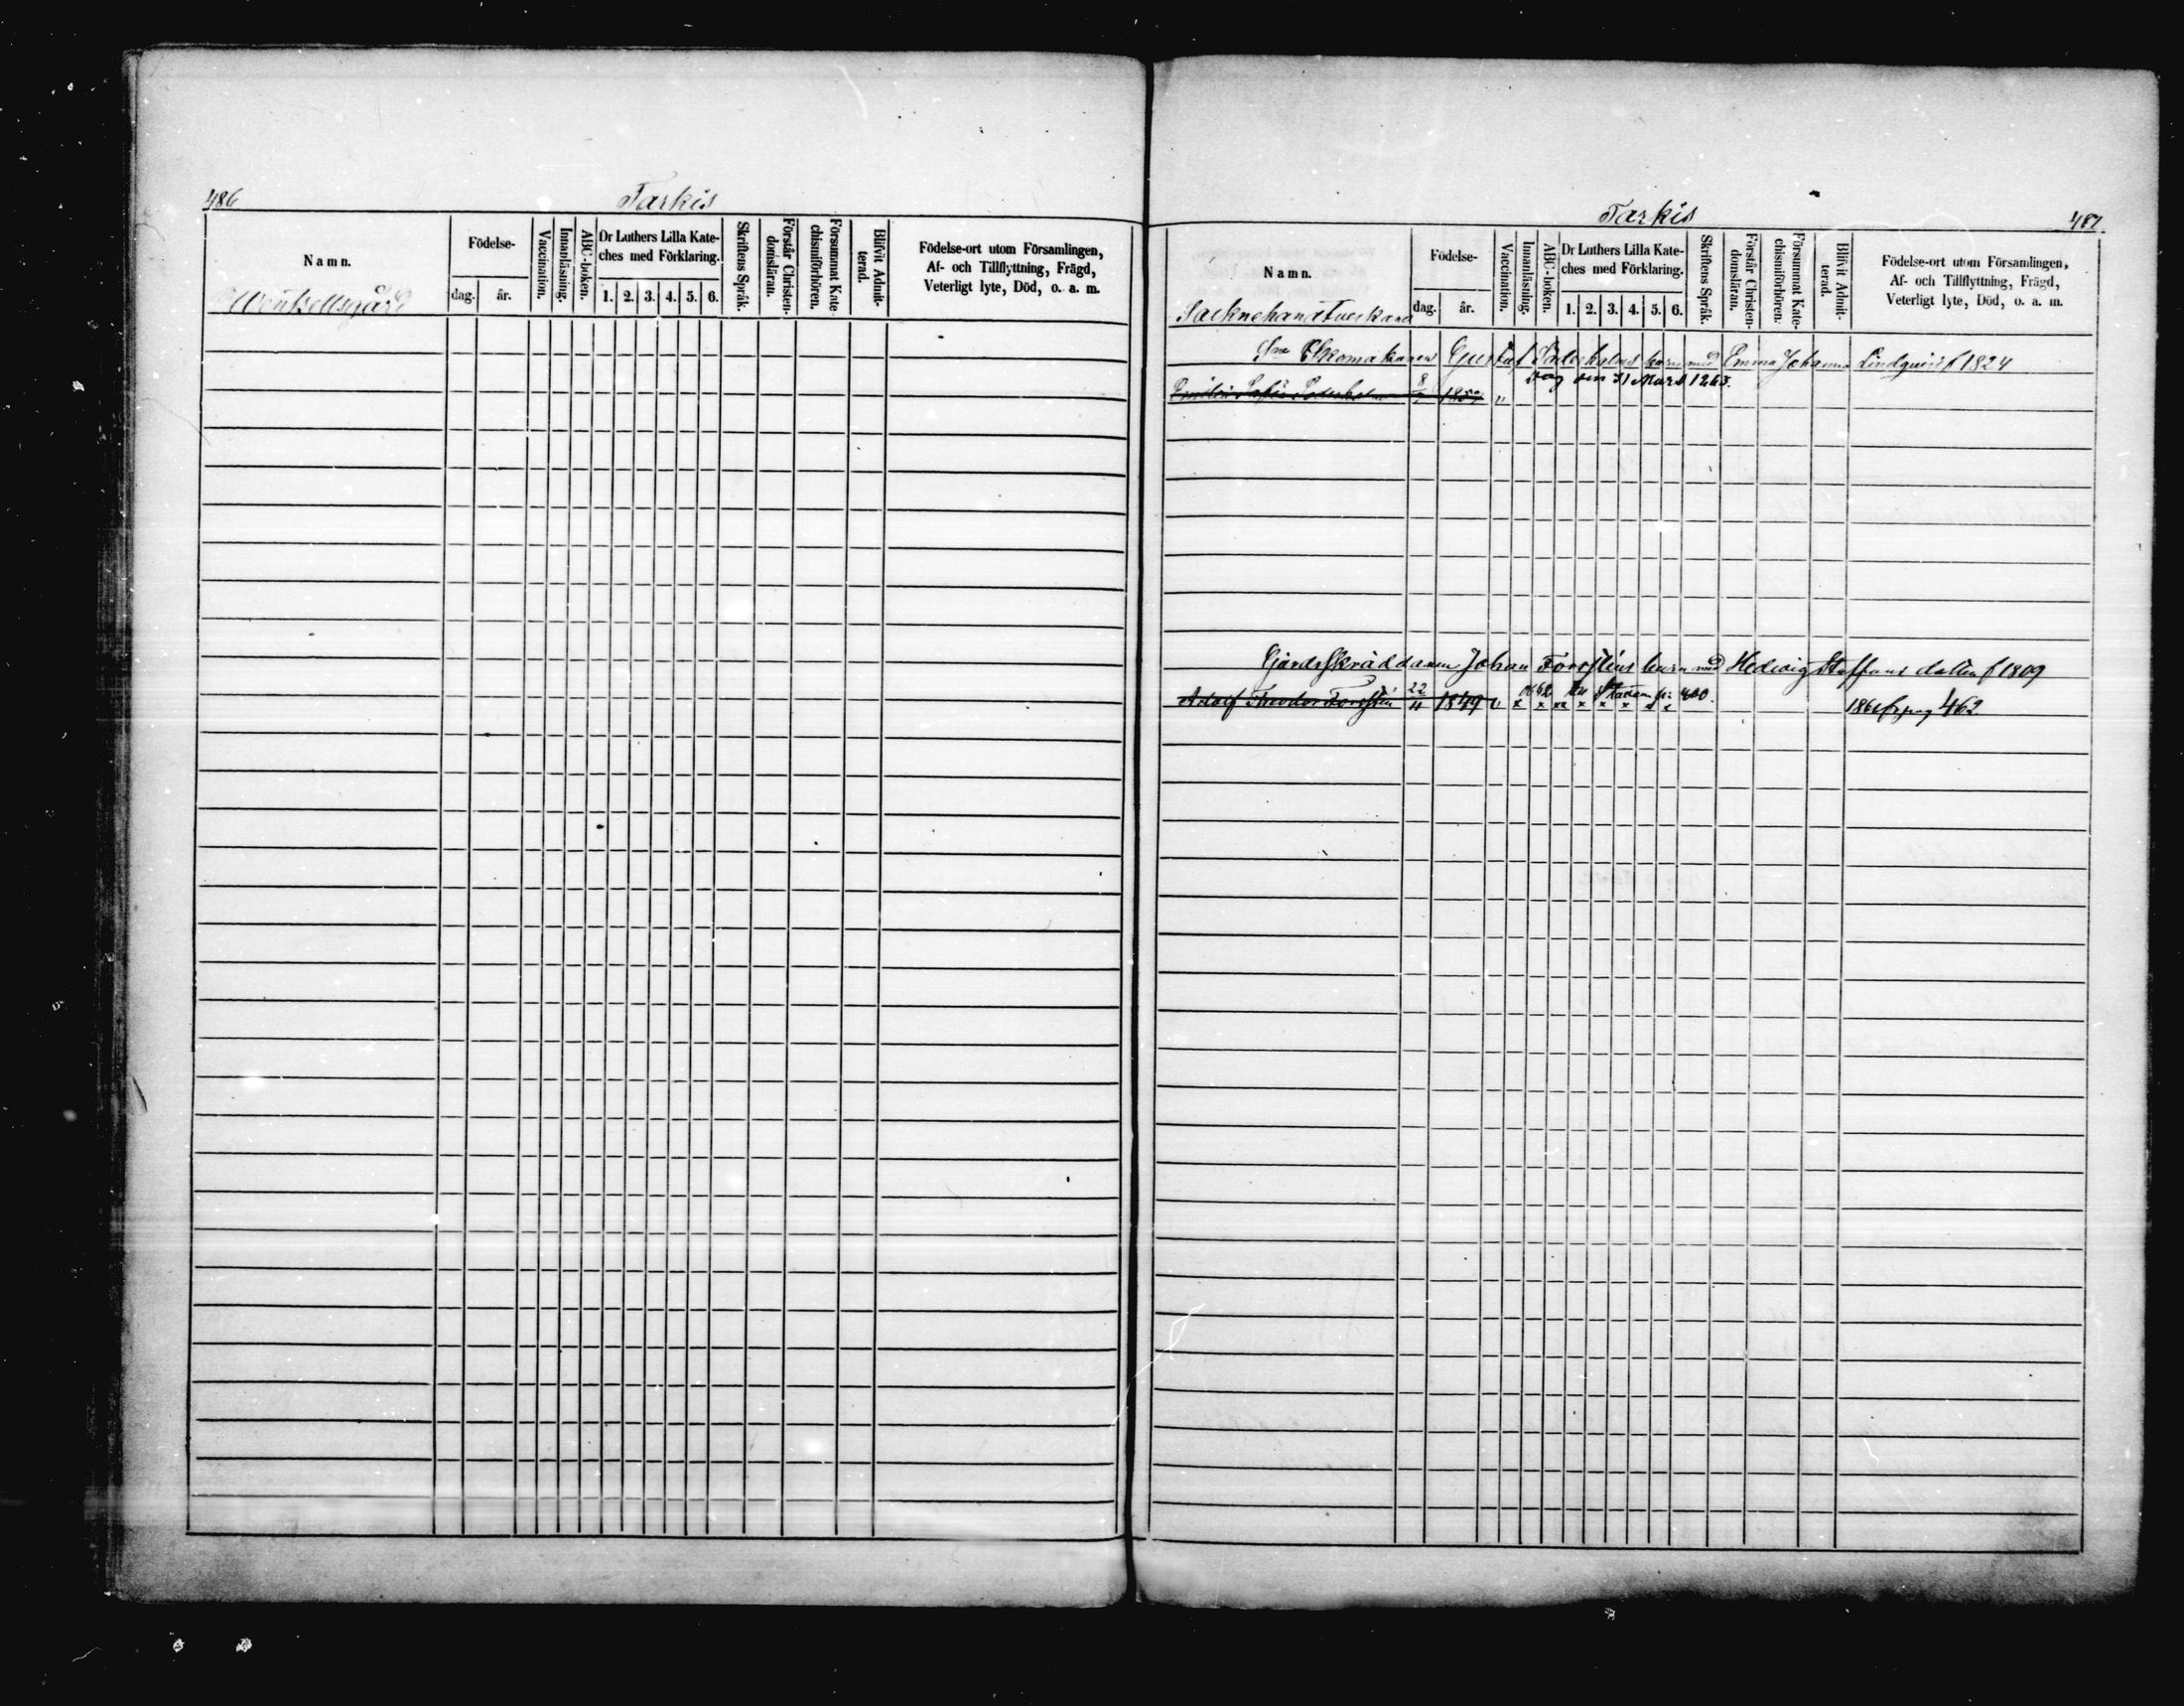 486
Tarkis
Namn.
Födelse-
dag.
år.
Vaccination.
Innanläsning.
ABC-boken.
Dr Luthers Lilla Kate-
ches med Förklaring.
1. 2. 3. 4. 5. 6.
Skriftens Språk.
Förstår Christen-
domsläran.
Försummat Kate-
chismiförhören.
Blifvit Admit-
terad.
Födelse-ort utom Församlingen,
Af- och Tillflyttning, Frägd,
Veterligt lyte, Död, o. a. m.
Tarkis
487.
Namn.
Födelse-
dag.
år.
Vaccination.
Innanläsning.
ABC-boken.
Dr Luthers Lilla Kate-
ches med Förklaring.
1. 2. 3. 4. 5. 6.
Skriftens Språk.
Förstår Christen-
domsläran.
Försummat Kate-
chismiförhören.
Blifvit Admit-
terad.
Födelse-ort utom Församlingen,
Af- och Tillflyttning, Frägd,
Veterligt lyte, Död, o. a. m.
Gustaf Söderholms barn med Emma Johanna Lindqvist f 1824
den 31 Mars 1863.
Söderholm 8
Johan Forsténs barn med Hedvig Staffans dotter f 1809
Adolf Theodor Forstén 22/11 1849 400. 462